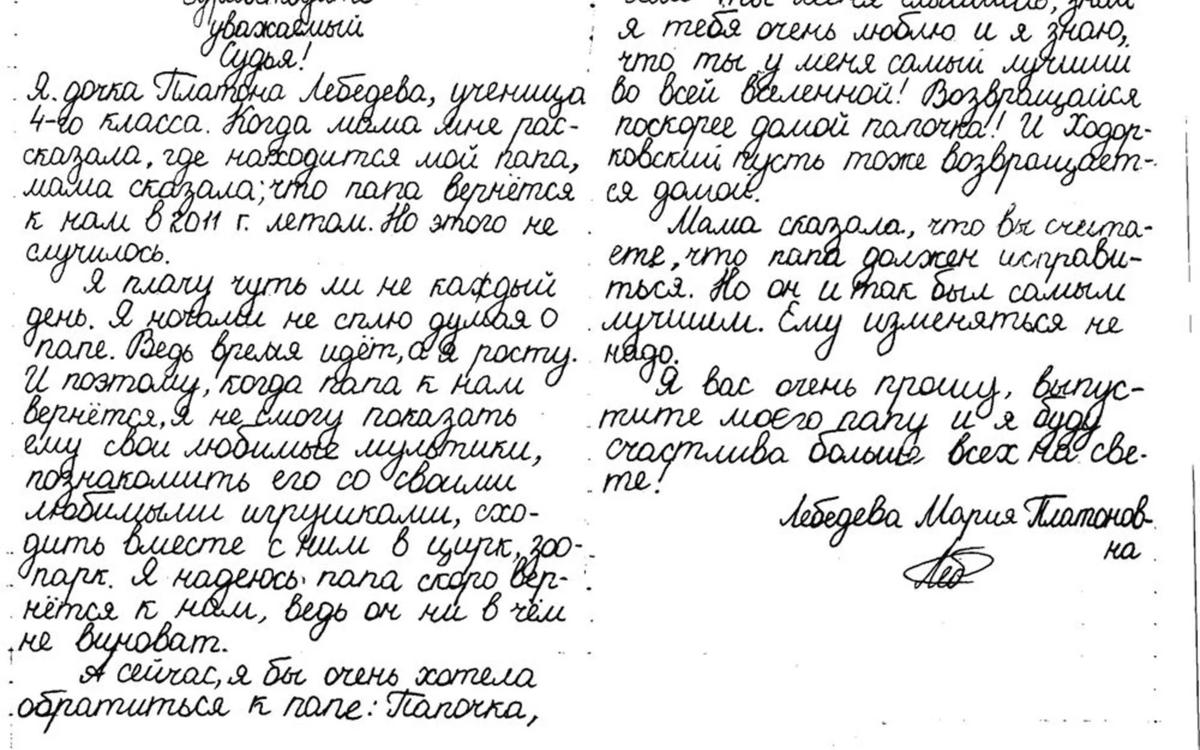 Здравствуйте
уважаемый
Судья!
Я дочка Платона Лебедева, ученица
4-го класса. Когда мама мне рас-
сказала, где находится мой папа,
мама сказала, что папа вернётся
к нам в 2011 г. летом. Но этого не
случилось.
Я плачу чуть ли не каждый
день. Я ночами не сплю думая о
папе. Ведь время идёт, а я росту.
И поэтому, когда папа к нам
вернётся, я не смогу показать
ему свои любимые мультики,
познакомить его со своими
любимыми игрушками, схо-
дить вместе с ним в цирк, зоо-
парк. Я надеюсь папа скоро вер-
нётся к нам, ведь он ни в чём
не виноват.
А сейчас, я бы очень хотела
обратиться к папе: Папочка,
если ты меня слышишь, знай
я тебя очень люблю и я знаю,
что ты у меня самый лучший
во всей вселенной! Возвращайся
поскорее домой папочка! И Ходор-
ковский пусть тоже возвращает-
ся домой.
Мама сказала, что вы счита-
ете, что папа должен исправи-
ться. Но он и так был самым
лучшим. Ему изменяться не
надо.
Я вас очень прошу, выпус-
тите моего папу и я буду
счастлива больше всех на све-
те!
Лебедева Мария Платонов-
на
Леб